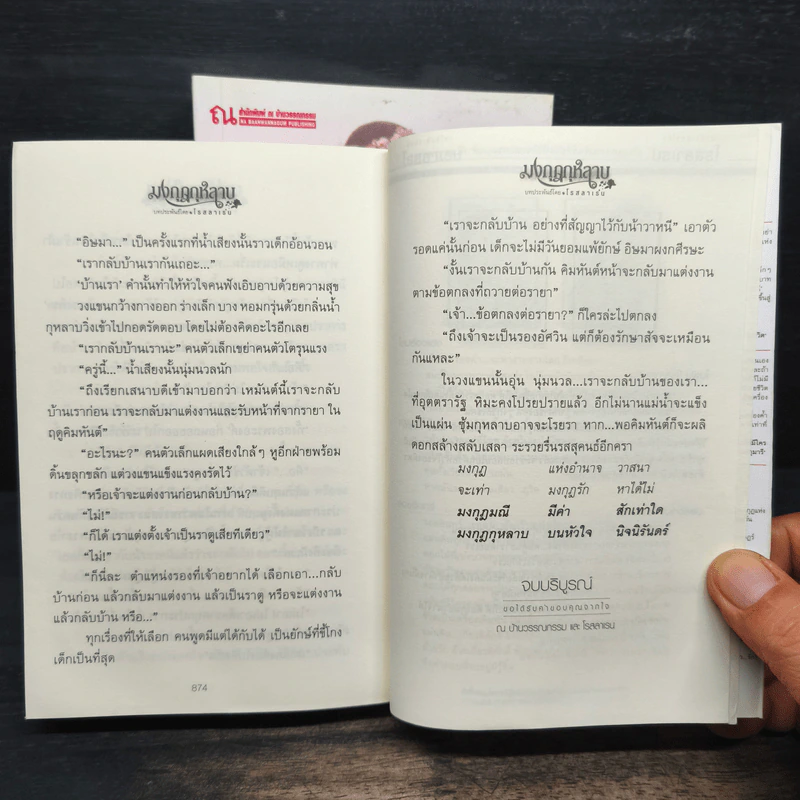 ณ สำนักพิมพ์ ณ บ้านวรรณกรรม
NA BAANWANNAGUM PUBLISHING
มงกุฎกุหลาบ
บทประพันธ์โดย โรสลาเรน
“อิษมา...” เป็นครั้งแรกที่น้ำเสียงนั้นราวเด็กอ้อนวอน
“เรากลับบ้านเรากันเถอะ...”
‘บ้านเรา’ คำนั้นทำให้หัวใจคนฟังเอิบอาบด้วยความสุข
วงแขนกว้างกางออก ร่างเล็ก บาง หอมกรุ่นด้วยกลิ่นน้ำ
กุหลาบวิ่งเข้าไปกอดรัดตอบ โดยไม่ต้องคิดอะไรอีกเลย
“เรากลับบ้านเรานะ” คนตัวเล็กเขย่าคนตัวโตรุนแรง
“ครู่นี้...” น้ำเสียงนั้นนุ่มนวลนัก
“ถึงเรียกเสนาบดีเข้ามาบอกว่า เหมันต์นี้เราจะกลับ
บ้านเราก่อน เราจะกลับมาแต่งงานและรับหน้าที่จากรายา ใน
ฤดูคิมหันต์”
“อะไรนะ?” คนตัวเล็กแผดเสียงใกล้ๆ หูอีกฝ่ายพร้อม
ดิ้นขลุกขลัก แต่วงแขนแข็งแรงคงรัดไว้
“หรือเจ้าจะแต่งงานก่อนกลับบ้าน?”
“ไม่!”
“ก็ได้ เราแต่งตั้งเจ้าเป็นราตูเสียทีเดียว”
“ไม่!”
“ก็นี่ละ ตำแหน่งรองที่เจ้าอยากได้ เลือกเอา...กลับ
บ้านก่อน แล้วกลับมาแต่งงาน แล้วเป็นราตู หรือจะแต่งงาน
แล้วกลับบ้าน หรือ...”
ทุกเรื่องที่ให้เลือก คนพูดมีแต่ได้กับได้ เป็นยักษ์ที่ขี้โกง
เด็กเป็นที่สุด
674
มงกุฎกุหลาบ
บทประพันธ์โดย โรสลาเรน
“เราจะกลับบ้าน อย่างที่สัญญาไว้กับน้าวาหนี” เอาตัว
รอดแค่นั้นก่อน เด็กจะไม่มีวันยอมแพ้ยักษ์ อิษมาผงกศีรษะ
“งั้นเราจะกลับบ้านกัน คิมหันต์หน้าจะกลับมาแต่งงาน
ตามข้อตกลงที่ถวายต่อรายา”
“เจ้า...ข้อตกลงต่อรายา?” ก็ใครล่ะไปตกลง
“ถึงเจ้าจะเป็นรองอัศวิน แต่ก็ต้องรักษาสัจจะเหมือน
กันแหละ”
ในวงแขนนั้นอุ่น นุ่มนวล...เราจะกลับบ้านของเรา...
ที่อุตตรารัฐ หิมะคงโปรยปรายแล้ว อีกไม่นานแม่น้ำจะแข็ง
เป็นแผ่น ซุ้มกุหลาบอาจจะโรยรา หาก...พอคิมหันต์ก็จะผลิ
ดอกสล้างสลับเสลา ระรวยรื่นรสสุคนธ์อีกครา
มงกุฎ แห่งอำนาจ วาสนา
จะเท่า มงกุฎรัก หาได้ไม่
มงกุฎมณี มีค่า สักเท่าใด
มงกุฎกุหลาบ บนหัวใจ นิจนิรันดร์
จบบริบูรณ์
ขอได้รับคำขอบคุณจากใจ
ณ บ้านวรรณกรรม และ โรสลาเรน